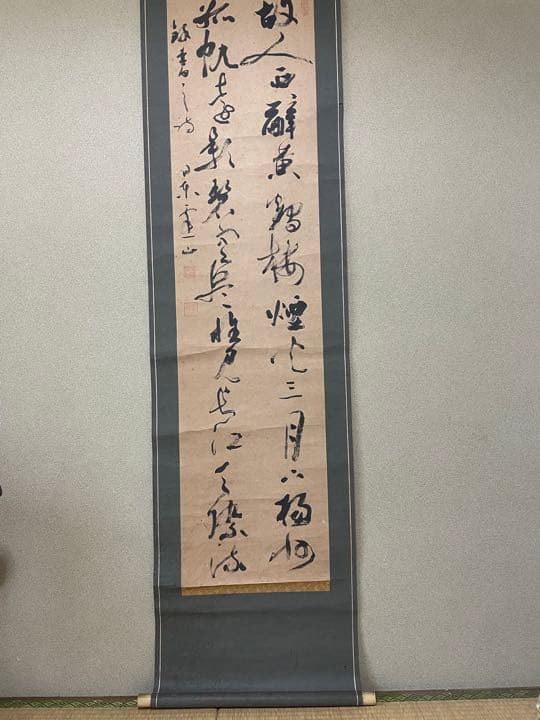 故人西辭黄鶴樓煙花三月下揚州
孤帆遠影碧空盡惟見長江天際流
録李白之詩 日東